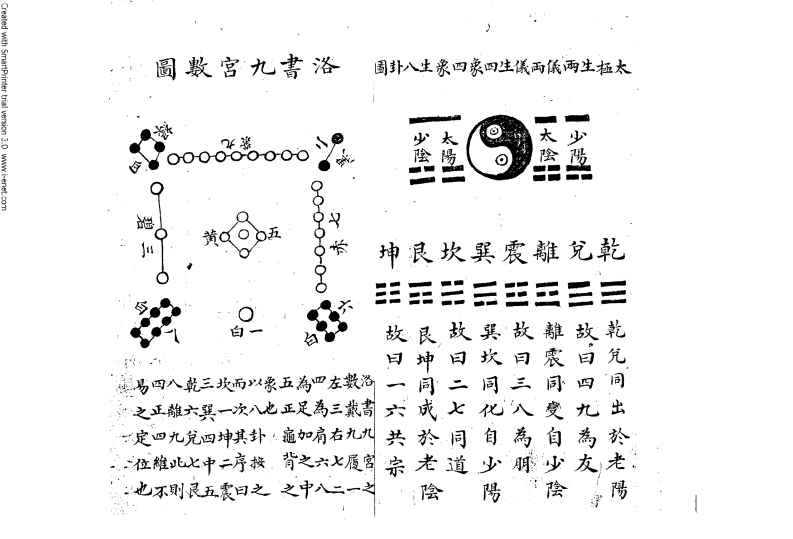 太極生兩儀兩儀生四象四象生八卦圖
少陽
太陰
太陽
少陰
乾兌離震巽坎艮坤
乾兌同出於老陽
故曰四九為友
離震同變自少陰
故曰三八為朋
巽坎同化自少陽
故曰二七同道
艮坤同成於老陰
故曰一六共宗
洛書九宮數圖
二黑
九紫
四綠
七赤
五黃
三碧
六白
一白
八白
洛書九宮之
數戴九履一
左三右七二
四為肩六八
為足加之中
五正龜背之
象也
以八卦按之
而次其序曰
坎一坤二震
三巽四中五
乾六兌七艮
八離九此則
四正四維不
易之定位也
Created with SmartPrinter trial version 3.0 www.i-enet.com